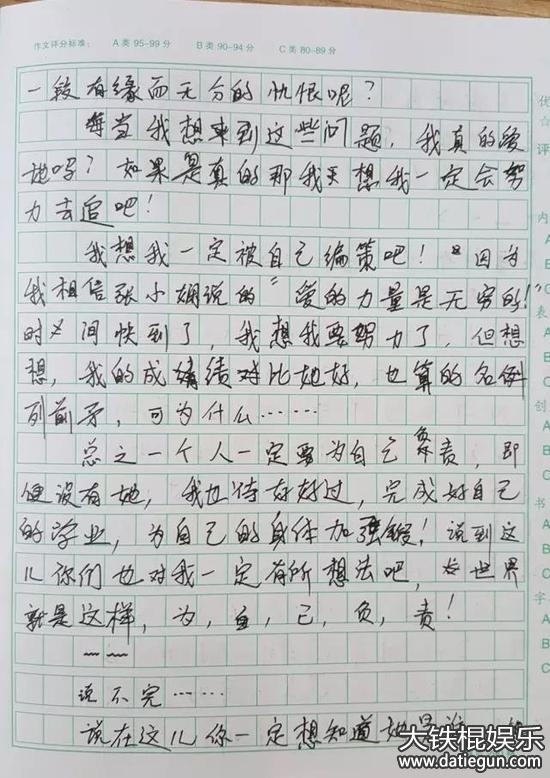 作文评分标准： A类95-99分 B类90-94分 C类80-89分
一段有缘而无分的仇恨呢？
每当我想来到这些问题，我真的爱
她吗？如果是真的那我天想我一定会努
力去追吧！
我想我一定被自己编策吧！因为
我相信张小娴说的“爱的力量是无穷的！”
时间快到了，我想我要努力了，但想
想，我的成绩对比她好，也算的名例
列前矛，可为什么……
总之一个人一定要为自己负责，即
便没有她，我也待好好过，完成好自己
的学业，为自己的身体加强锻！说到这
儿你们也对我一定有所想法吧，世界
就是这样，为，自，己，负，责！
~~
说不完……
说在这儿你一定想知道她是
优
☆
评
内
A
B
C
表
A
B
C
创
A
B
C
书
A
字
B
C
大铁棍娱乐
www.datiegun.com